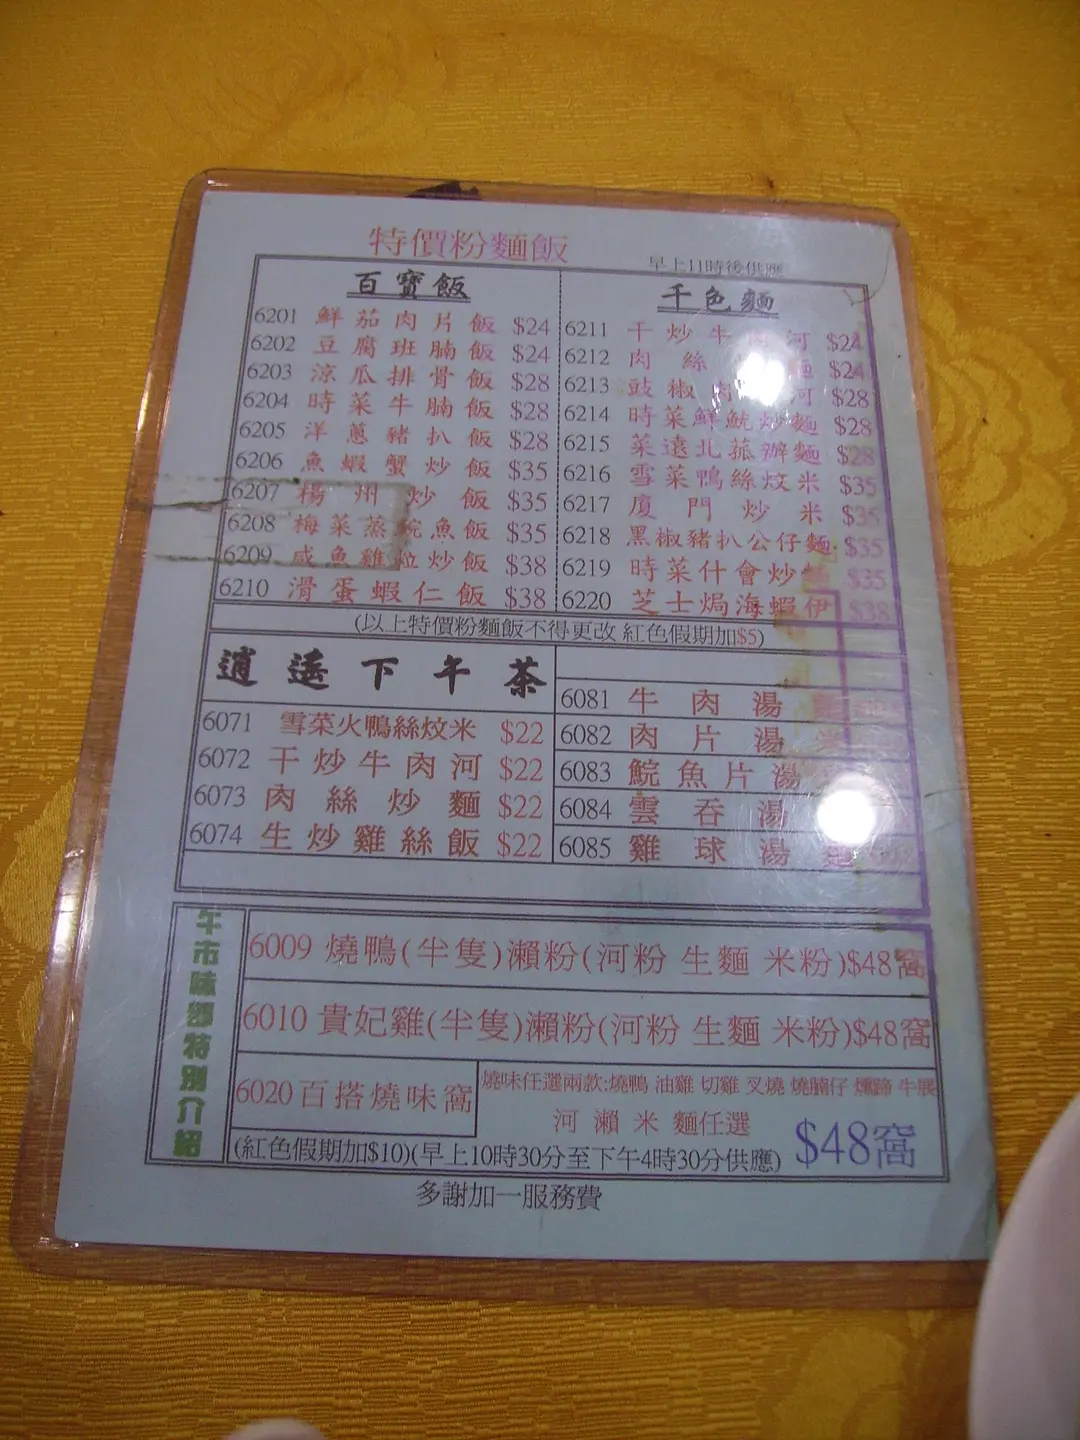 特價粉麵飯
早上11時後供應
百寶飯
6201 鮮茄肉片飯 $24
6202 豆腐班腩飯 $24
6203 涼瓜排骨飯 $28
6204 時菜牛腩飯 $28
6205 洋蔥豬扒飯 $28
6206 魚蝦蟹炒飯 $35
6207 楊州炒飯 $35
6208 梅菜蒸鯇魚飯 $35
6209 咸魚雞粒炒飯 $38
6210 滑蛋蝦仁飯 $38
千色麵
6211 干炒牛肉河 $24
6212 肉絲炒麵 $24
6213 豉椒肉河 $28
6214 時菜鮮魷炒麵 $28
6215 菜遠北菰辦麵 $28
6216 雪菜鴨絲炆米 $35
6217 廈門炒米 $35
6218 黑椒豬扒公仔麵 $35
6219 時菜什會炒 $35
6220 芝士焗海蝦伊 $38
(以上特價粉麵飯不得更改 紅色假期加$5)
逍遙下午茶
6071 雪菜火鴨絲炆米 $22
6072 干炒牛肉河 $22
6073 肉絲炒麵 $22
6074 生炒雞絲飯 $22
6081 牛肉湯
6082 肉片湯
6083 鯇魚片湯
6084 雲吞湯
6085 雞球湯
午市味部特別介紹
6009 燒鴨(半隻)瀨粉(河粉 生麵 米粉)$48窩
6010 貴妃雞(半隻)瀨粉(河粉 生麵 米粉)$48窩
6020 百搭燒味窩
燒味任選兩款:燒鴨 油雞 切雞 叉燒 燒腩仔 燻蹄 牛展
河 瀨 米 麵任選
$48窩
(紅色假期加$10)(早上10時30分至下午4時30分供應)
多謝加一服務費